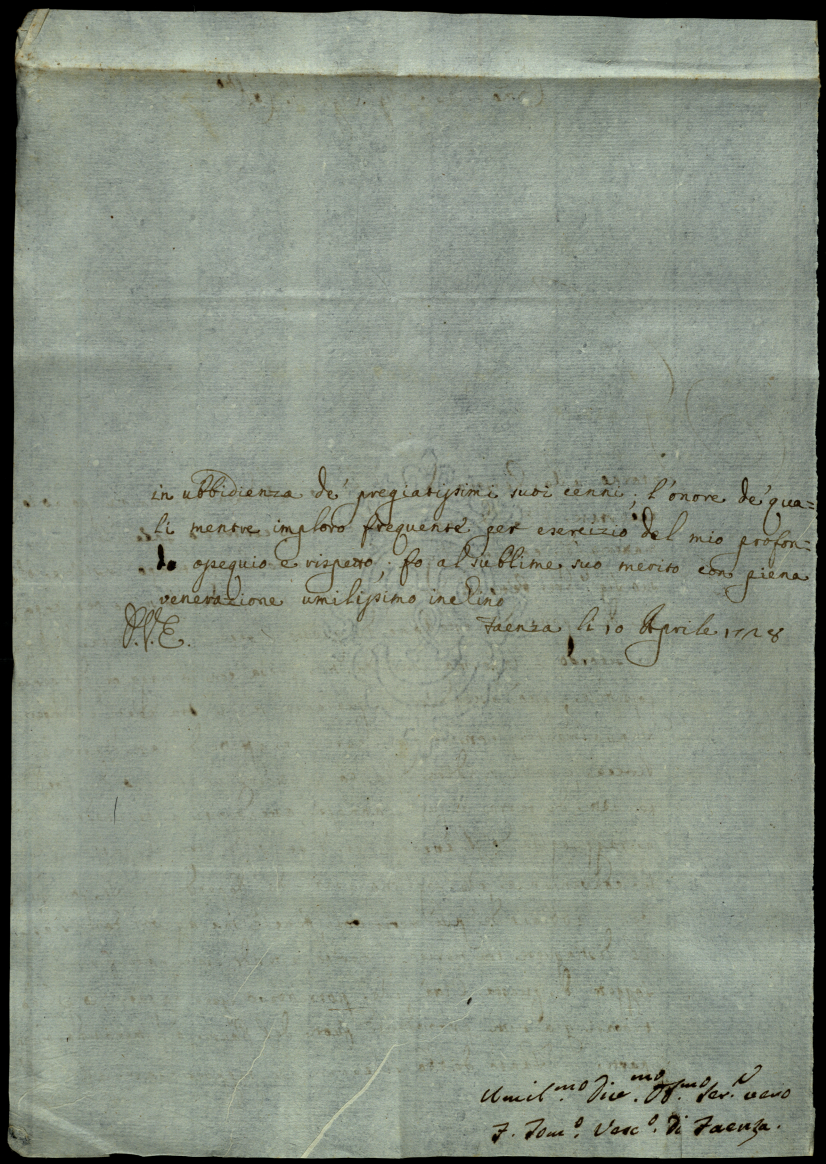 in ubbidienza de' pregiatissimi suoi cenni; l'onore de' qua=
li mentre imploro frequente per esercizio del mio profon=
do ossequio e rispetto, fo al sublime suo merito con piena
venerazione umilissimo inclino
P.V.E. Faenza li 10 Aprile 1728
Umil.mo Div.mo Obb.mo Ser.e vero
F. Tom.o Vesc.o di Faenza.